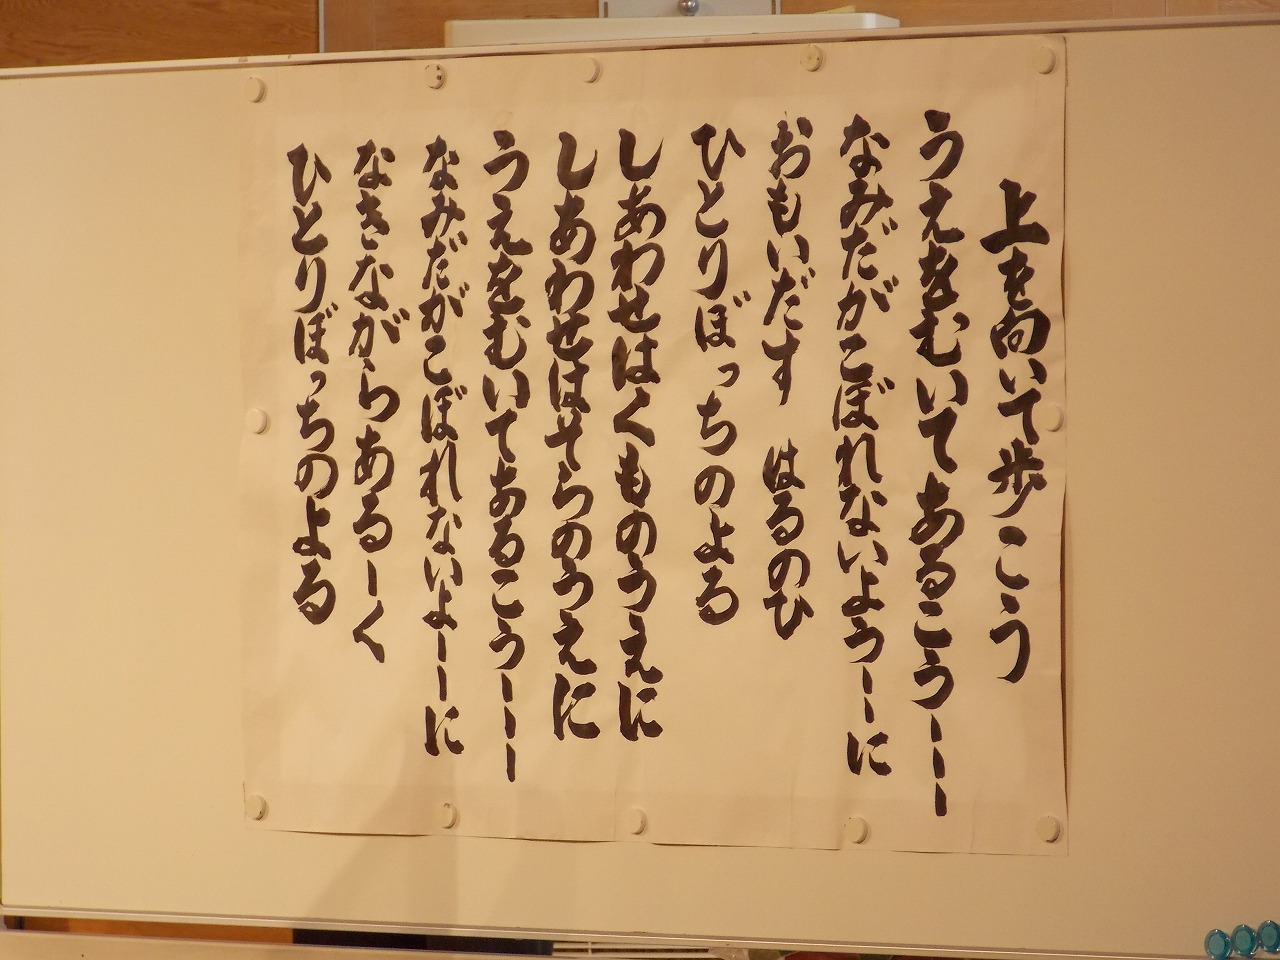 上を向いて歩こう
うえをむいてあるこうーーー
なみだがこぼれないようーーに
おもいだす　はるのひ
ひとりぼっちのよる
しあわせはくものうえに
しあわせはそらのうえに
うえをむいてあるこうーーー
なみだがこぼれないよーーに
なきながらあるーく
ひとりぼっちのよる